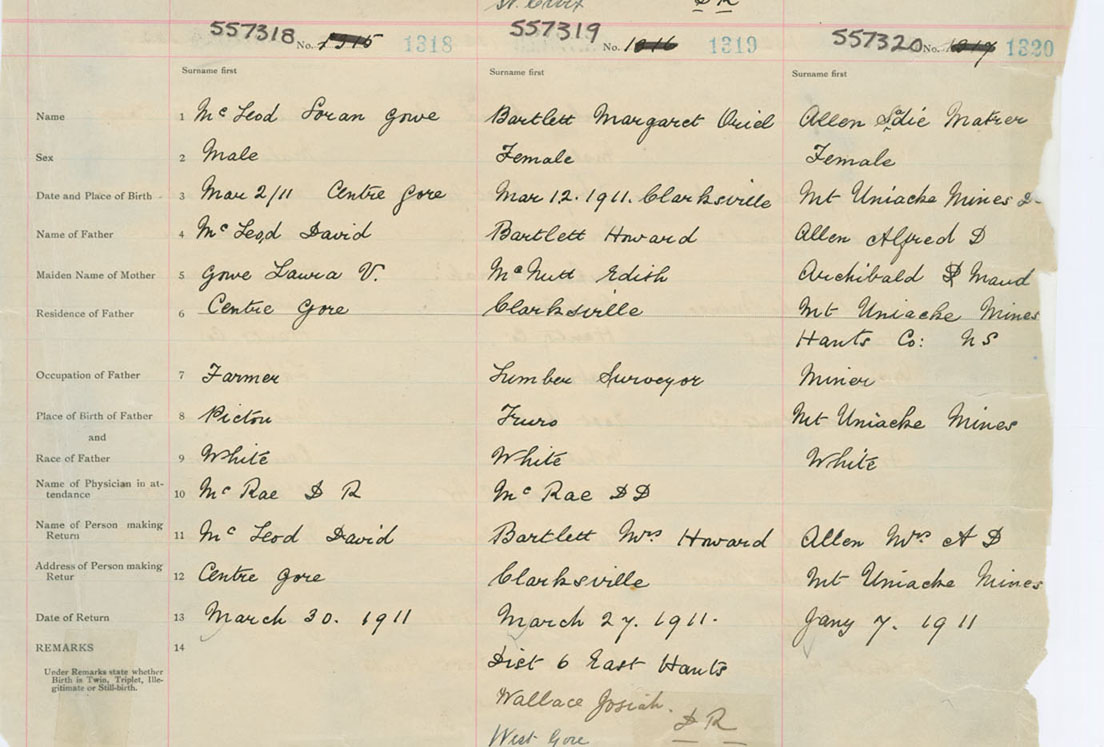 St. Croix D R
557318 No. 1318 557319 No. 1319 557320 No. 1320
Surname first Surname first Surname first
Name 1 McLeod Loran Gowe Bartlett Margaret Oriel Allen Sadie
Sex 2 Male Female Female
Date and Place of Birth 3 Mar 2/11 Centre Gore Mar 12. 1911. Clarksville Mt Uniacke Mines
Name of Father 4 McLeod David Bartlett Howard Allen Alfred D
Maiden Name of Mother 5 Gowe Laura V. McNutt Edith Archibald Maud
Residence of Father 6 Centre Gore Clarksville Mt Uniacke Mines
Hants Co: N S
Occupation of Father 7 Farmer Lumber Surveyor Miner
Place of Birth of Father 8 Pictou Truro Mt Uniacke Mines
and
Race of Father 9 White White White
Name of Physician in at-
tendance 10 McRae D R McRae D D
Name of Person making
Return 11 McLeod David Bartlett Mrs Howard Allen Mrs A D
Address of Person making
Retur 12 Centre Gore Clarksville Mt Uniacke Mines
Date of Return 13 March 30. 1911 March 27. 1911. Jany 7. 1911
REMARKS 14
Dist 6 East Hants
Under Remarks state whether
Birth is Twin, Triplet, Ille-
gitimate or Still-birth.
Wallace Josiah. D R
West Gore